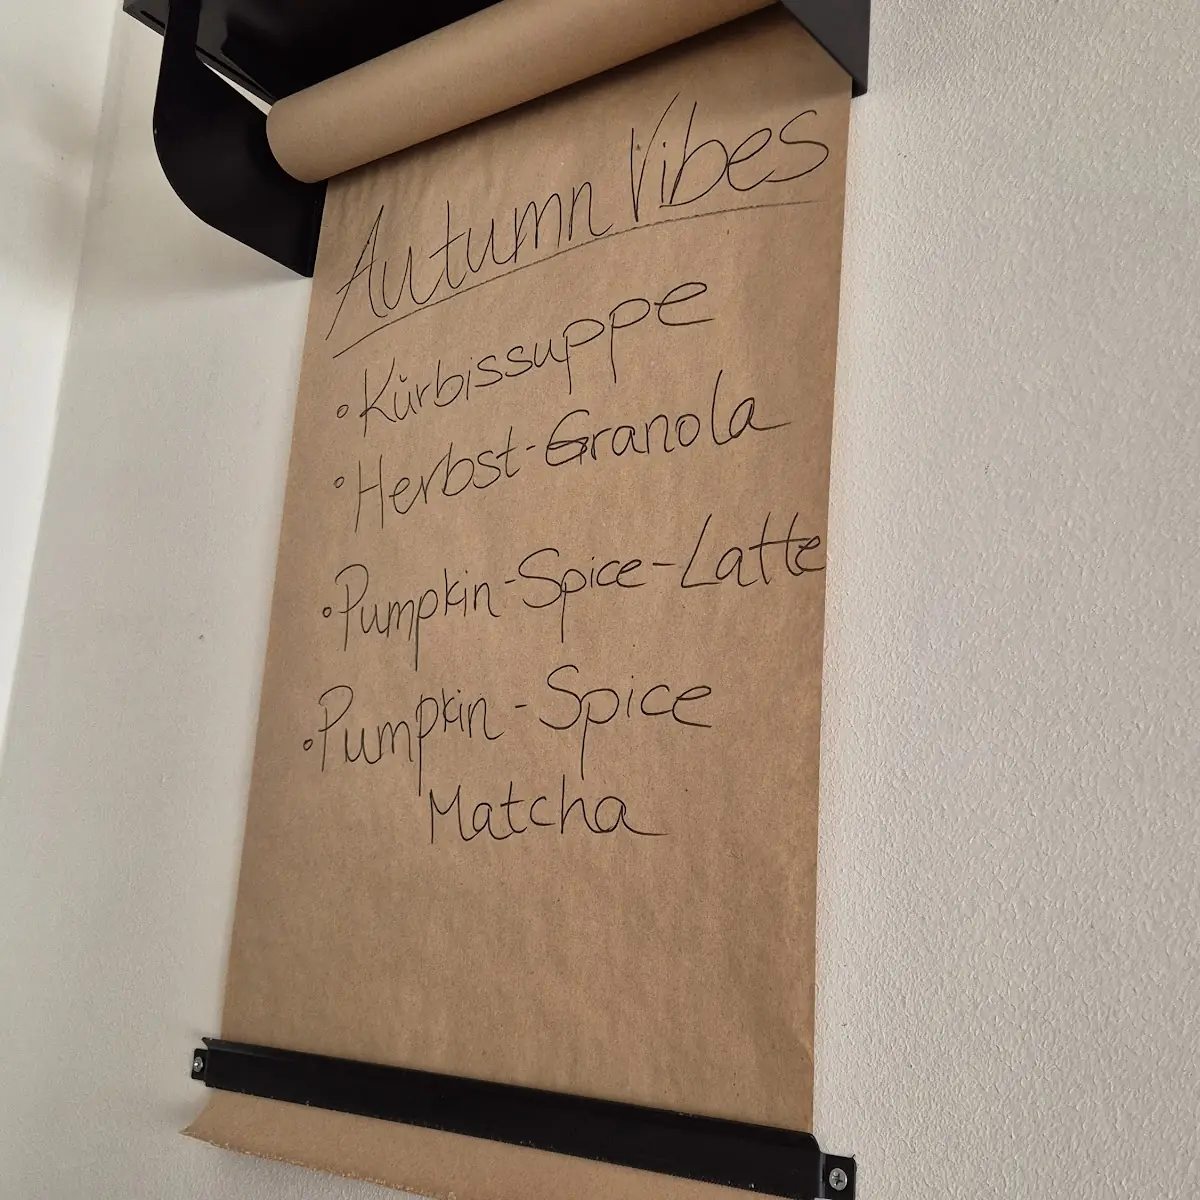 Autumn Vibes
• Kürbissuppe
• Herbst-Granola
• Pumpkin-Spice-Latte
• Pumpkin-Spice
Matcha